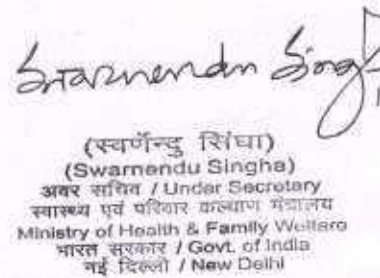 Swarnendu Singh
(स्वर्णेन्दु सिंघा)
(Swarnendu Singha)
अवर सचिव / Under Secretary
स्वास्थ्य एवं परिवार कल्याण मंत्रालय
Ministry of Health & Family Welfare
भारत सरकार / Govt. of India
नई दिल्ली / New Delhi